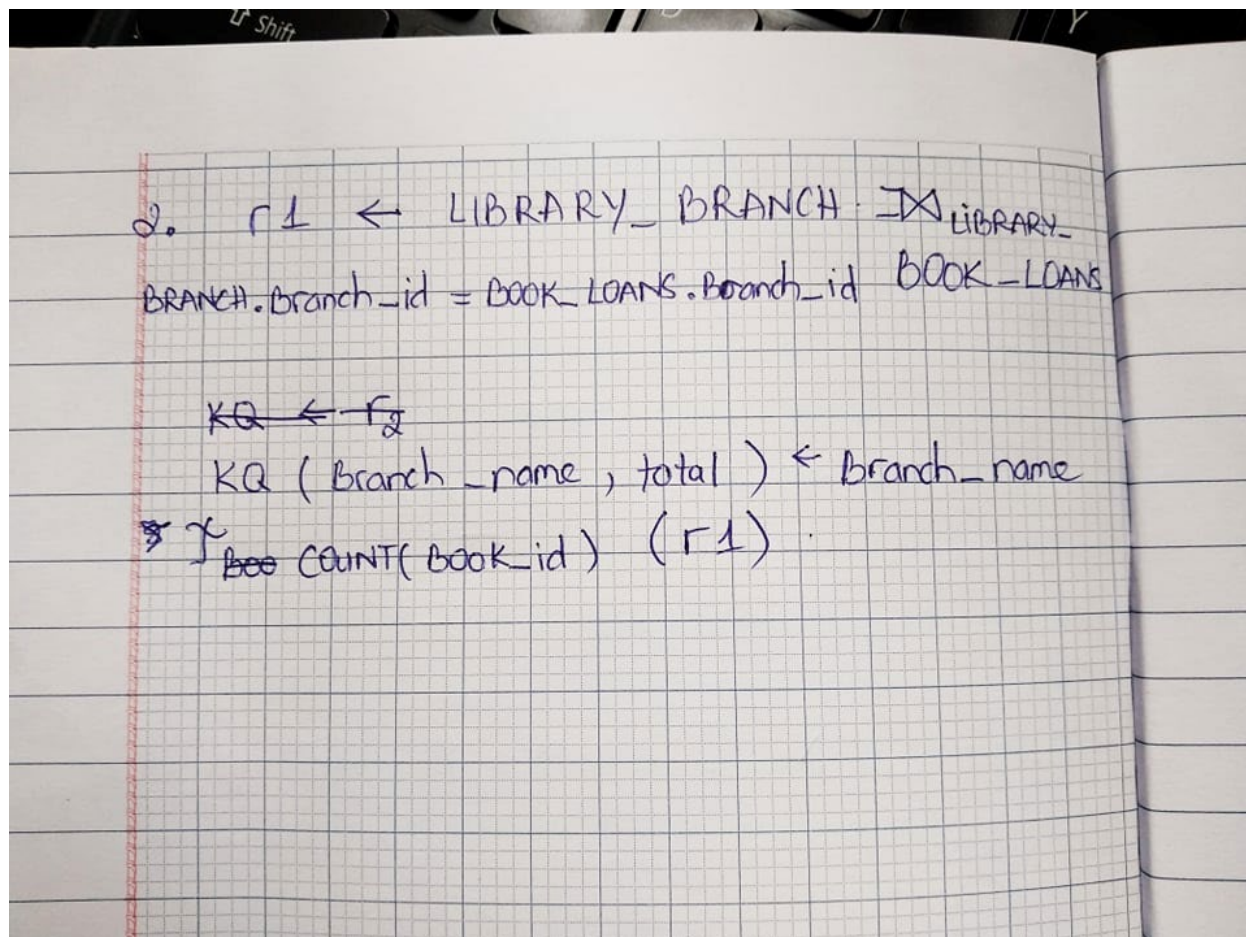 Shift
Y
2. r1 ← LIBRARY_BRANCH ⟕ LIBRARY_
BRANCH.Branch_id = BOOK_LOANS.Branch_id BOOK_LOANS
KQ ← r2
KQ (Branch_name, total) ← Branch_name
ℱ Boo COUNT(Book_id) (r1).